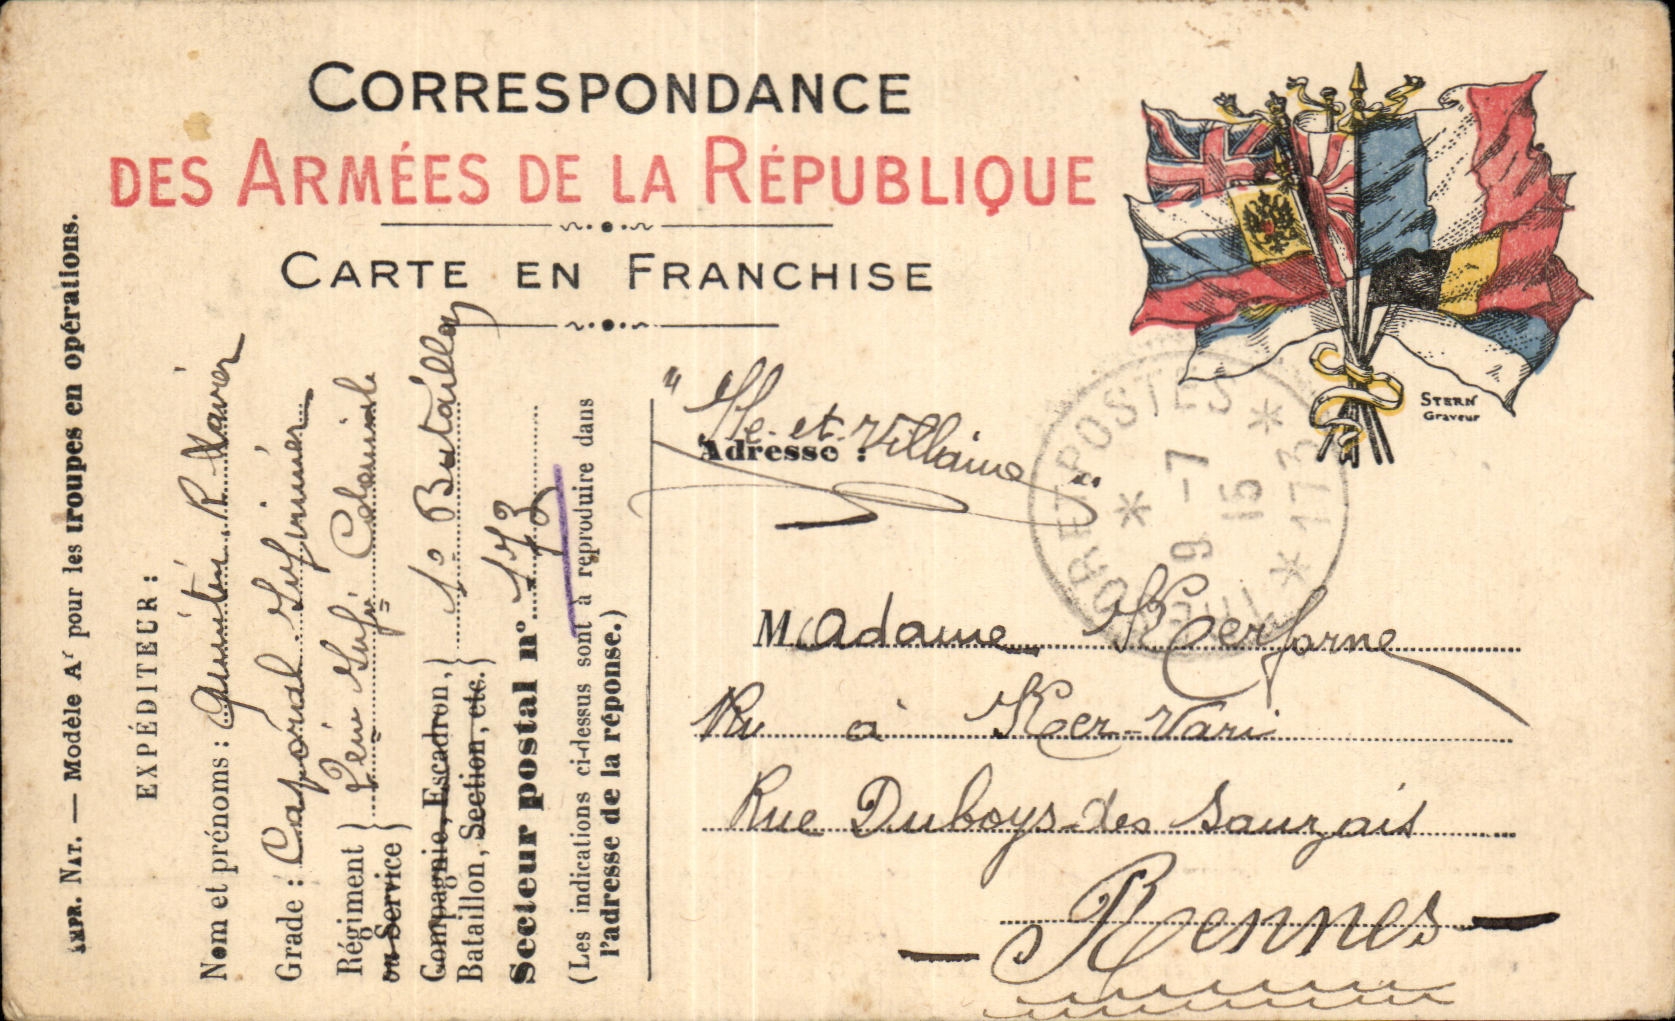 CORRESPONDANCE
DES ARMÉES DE LA RÉPUBLIQUE
CARTE EN FRANCHISE
STERN
Graveur
IMPR. NAT. — Modèle Aʳ pour les troupes en opérations.
EXPÉDITEUR :
Nom et prénoms : Quintin R Xavier
Grade : Caporal Infirmier
Régiment ou Service } Colonial
Compagnie, Escadron, Bataillon, Section, etc. } 1º Bataillon
Secteur postal nº 173
(Les indications ci-dessus sont à reproduire dans
l'adresse de la réponse.)
"Ille-et-Villaine"
Adresse :
Madame Kerforne
à Ker-Vari
Rue Duboys-des Sauzais
— Rennes —
TRESOR ET POSTES
9 - 7
15
* 173 *